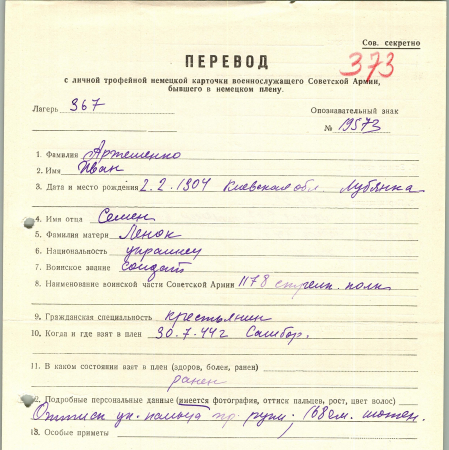 Сов. секретно
ПЕРЕВОД
373
с личной трофейной немецкой карточки военнослужащего Советской Армии,
бывшего в немецком плену.
Лагерь 367
Опознавательный знак
№ 19573
1. Фамилия Артеменко
2. Имя Иван
3. Дата и место рождения 2.2.1904 Киевская обл. Лубянка
4. Имя отца Семен
5. Фамилия матери Ленок
6. Национальность украинец
7. Воинское звание солдат
8. Наименование воинской части Советской Армии 1178 стрелк. полк
9. Гражданская специальность крестьянин
10. Когда и где взят в плен 30.7.44г Самбор.
11. В каком состоянии взят в плен (здоров, болен, ранен)
ранен
12. Подробные персональные данные (имеется фотография, оттиск пальцев, рост, цвет волос)
Оттиск ук. пальца пр. руки. 168см.
13. Особые приметы